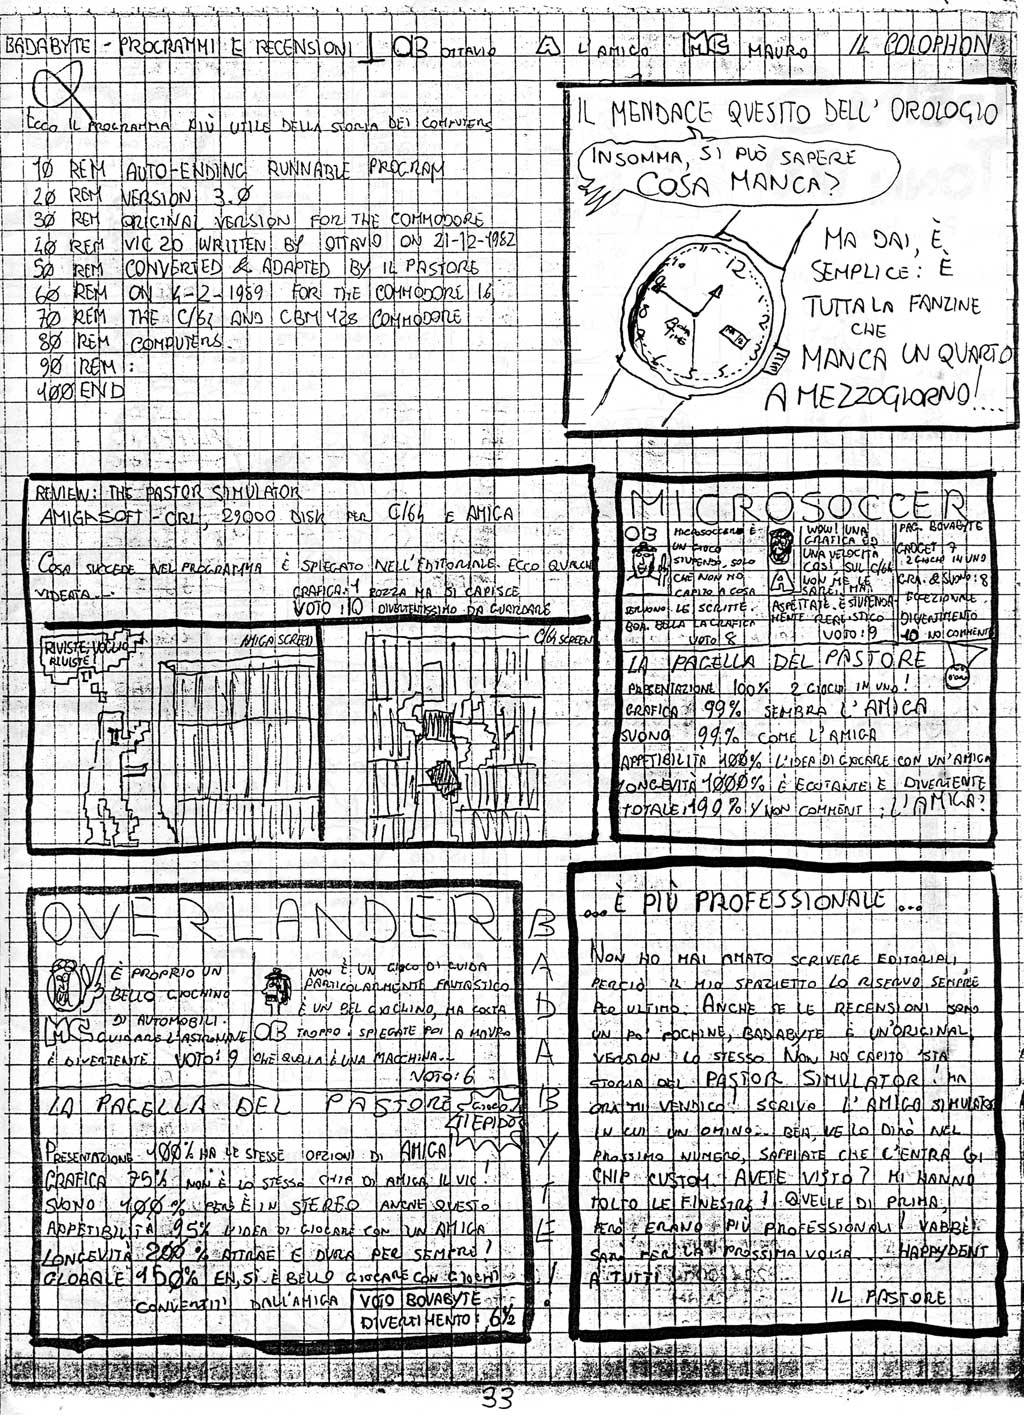 BADABYTE - PROGRAMMI E RECENSIONI OB OTTAVIO A L'AMICO MC MAURO IL COLOPHON
ECCO IL PROGRAMMA PIÙ UTILE DELLA STORIA DEI COMPUTERS
10 REM AUTO-ENDING RUNNABLE PROGRAM
20 REM VERSION 3.0
30 REM ORIGINAL VERSION FOR THE COMMODORE
40 REM VIC 20 WRITTEN BY OTTAVIO ON 21-12-1982
50 REM CONVERTED & ADAPTED BY IL PASTORE
60 REM ON 4-2-1989 FOR THE COMMODORE 16,
70 REM THE C/64 AND CBM 128 COMMODORE
80 REM COMPUTERS.
90 REM :
100 END
IL MENDACE QUESITO DELL'OROLOGIO
INSOMMA, SI PUÒ SAPERE
COSA MANCA?
12
MA DAI, È
SEMPLICE: È
TUTTA LA FANZINE
CHE
MANCA UN QUARTO
A MEZZOGIORNO!....
REVIEW: THE PASTOR SIMULATOR
AMIGASOFT - CRL, 29000 DISK PER C/64 E AMIGA
COSA SUCCEDE NEL PROGRAMMA È SPIEGATO NELL'EDITORIALE. ECCO QUALCHE
VIDEATA...
GRAFICA: 1 ROZZA MA SI CAPISCE
VOTO: 10 DIVERTENTISSIMO DA GUARDARE
RIVISTE, VOGLIO
RIVISTE!
AMIGA SCREEN
C/64 SCREEN
MICROSOCCER
OB
MICROSOCCER È
UN GIOCO
STUPENDO, SOLO
CHE NON HO
CAPITO A COSA
SERVONO LE SCRITTE.
BOA. BELLA LA GRAFICA
VOTO 8
WOW! UNA
GRAFICA ED
UNA VELOCITÀ
COSÌ, SUL C/64
A NON ME LE
SAREI MAI
ASPETTATE. È STUPENDA-
MENTE REALISTICO
VOTO: 9
PAG. BOVABYTE
GADGET 7
2 GIOCHI IN UNO
GRA. & SUONO: 8
ECCEZIONALE.
DIVERTIMENTO
10 NO COMMENT
LA PAGELLA DEL PASTORE
PRESENTAZIONE 100% 2 GIOCHI IN UNO!
GRAFICA: 99% SEMBRA L'AMIGA
SUONO 99% COME L'AMIGA
APPETIBILITÀ 100% L'IDEA DI GIOCARE CON UN'AMIGA
LONGEVITÀ 1000% È ECCITANTE E DIVERTENTE
TOTALE: 190% NON COMMENT: L'AMIGA?
OVERLANDER
È PROPRIO UN
BELLO GIOCHINO
DI AUTOMOBILI.
MC GUIDARE L'ASTRONAVE
È DIVERTENTE VOTO: 9
NON È UN GIOCO DI GUIDA
PARTICOLARMENTE FANTASTICO
È UN BEL GIOCHINO, MA COSTA
OB TROPPO. SPIEGATE POI A MAURO
CHE QUELLA È UNA MACCHINA...
VOTO: 6
LA PAGELLA DEL PASTORE
GIOCO
TIEPIDO
PRESENTAZIONE 100% HA LE STESSE OPZIONI DI AMIGA
GRAFICA 75% NON È LO STESSO CHIP DI AMIGA, IL VIC!
SUONO 100% PERÒ È IN STEREO ANCHE QUESTO
APPETIBILITÀ 95% L'IDEA DI GIOCARE CON UN AMIGA
LONGEVITÀ 200% ATTRAE E DURA PER SEMPRE!
GLOBALE 150% EH, SÌ, È BELLO GIOCARE CON GIOCHI
CONVERTITI DALL'AMIGA
VOTO BOVABYTE
DIVERTIMENTO: 6½
BADABYTE!
...È PIÙ PROFESSIONALE...
NON HO MAI AMATO SCRIVERE EDITORIALI
PERCIÒ IL MIO SPAZIETTO LO RISERVO SEMPRE
PER ULTIMO. ANCHE SE LE RECENSIONI SONO
UN PO' POCHINE, BADABYTE È UN'ORIGINAL
VERSION LO STESSO. NON HO CAPITO 'STA
STORIA DEL PASTOR SIMULATOR! MA
ORA MI VENDICO! SCRIVO L'AMIGA SIMULATOR
IN CUI UN OMINO... BEH, VE LO DIRÒ NEL
PROSSIMO NUMERO, SAPPIATE CHE C'ENTRA GI
CHIP CUSTOM. AVETE VISTO? MI HANNO
TOLTO LE FINESTRE! QUELLE DI PRIMA,
PERÒ, ERANO PIÙ PROFESSIONALI! VABBÈ!
SARÀ PER LA PROSSIMA VOLTA. HAPPYDENT
A TUTTI
IL PASTORE
33